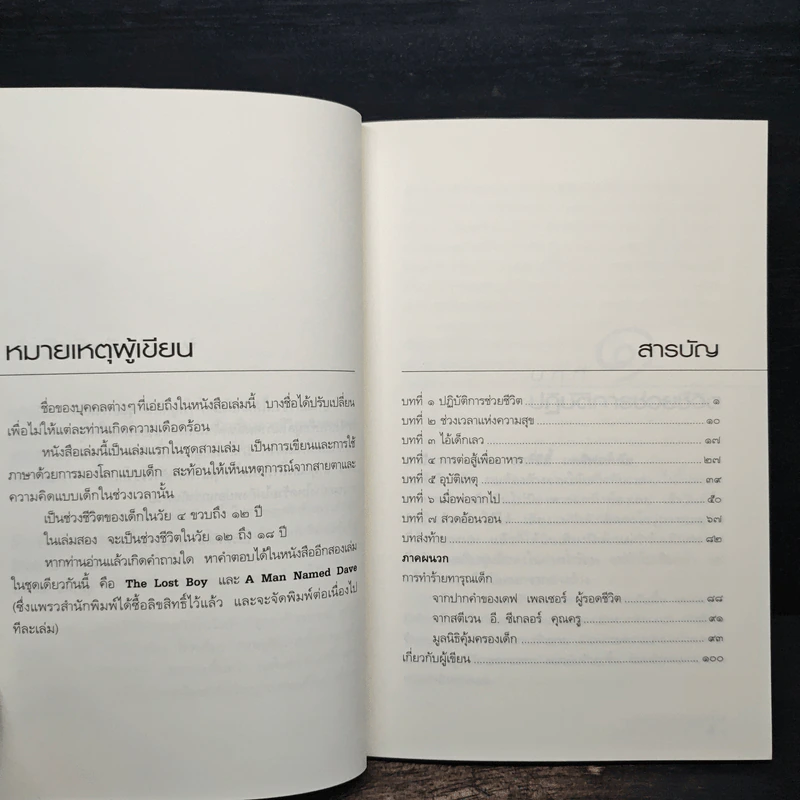 หมายเหตุผู้เขียน
ชื่อของบุคคลต่างๆที่เอ่ยถึงในหนังสือเล่มนี้ บางชื่อได้ปรับเปลี่ยน
เพื่อไม่ให้แต่ละท่านเกิดความเดือดร้อน
หนังสือเล่มนี้เป็นเล่มแรกในชุดสามเล่ม เป็นการเขียนและการใช้
ภาษาด้วยการมองโลกแบบเด็ก สะท้อนให้เห็นเหตุการณ์จากสายตาและ
ความคิดแบบเด็กในช่วงเวลานั้น
เป็นช่วงชีวิตของเด็กในวัย ๔ ขวบถึง ๑๒ ปี
ในเล่มสอง จะเป็นช่วงชีวิตในวัย ๑๒ ถึง ๑๘ ปี
หากท่านอ่านแล้วเกิดคำถามใด หาคำตอบได้ในหนังสืออีกสองเล่ม
ในชุดเดียวกันนี้ คือ The Lost Boy และ A Man Named Dave
(ซึ่งแพรวสำนักพิมพ์ได้ซื้อลิขสิทธิ์ไว้แล้ว และจะจัดพิมพ์ต่อเนื่องไป
ทีละเล่ม)
สารบัญ
บทที่ ๑ ปฏิบัติการช่วยชีวิต ๑
บทที่ ๒ ช่วงเวลาแห่งความสุข ๑๐
บทที่ ๓ ไอ้เด็กเลว ๑๗
บทที่ ๔ การต่อสู้เพื่ออาหาร ๒๗
บทที่ ๕ อุบัติเหตุ ๓๙
บทที่ ๖ เมื่อพ่อจากไป ๕๐
บทที่ ๗ สวดอ้อนวอน ๖๗
บทส่งท้าย ๘๒
ภาคผนวก
การทำร้ายทารุณเด็ก
จากปากคำของเดฟ เพลเซอร์ ผู้รอดชีวิต ๘๘
จากสตีเวน อี. ซีเกลอร์ คุณครู ๙๑
มูลนิธิคุ้มครองเด็ก ๙๓
เกี่ยวกับผู้เขียน ๑๐๐